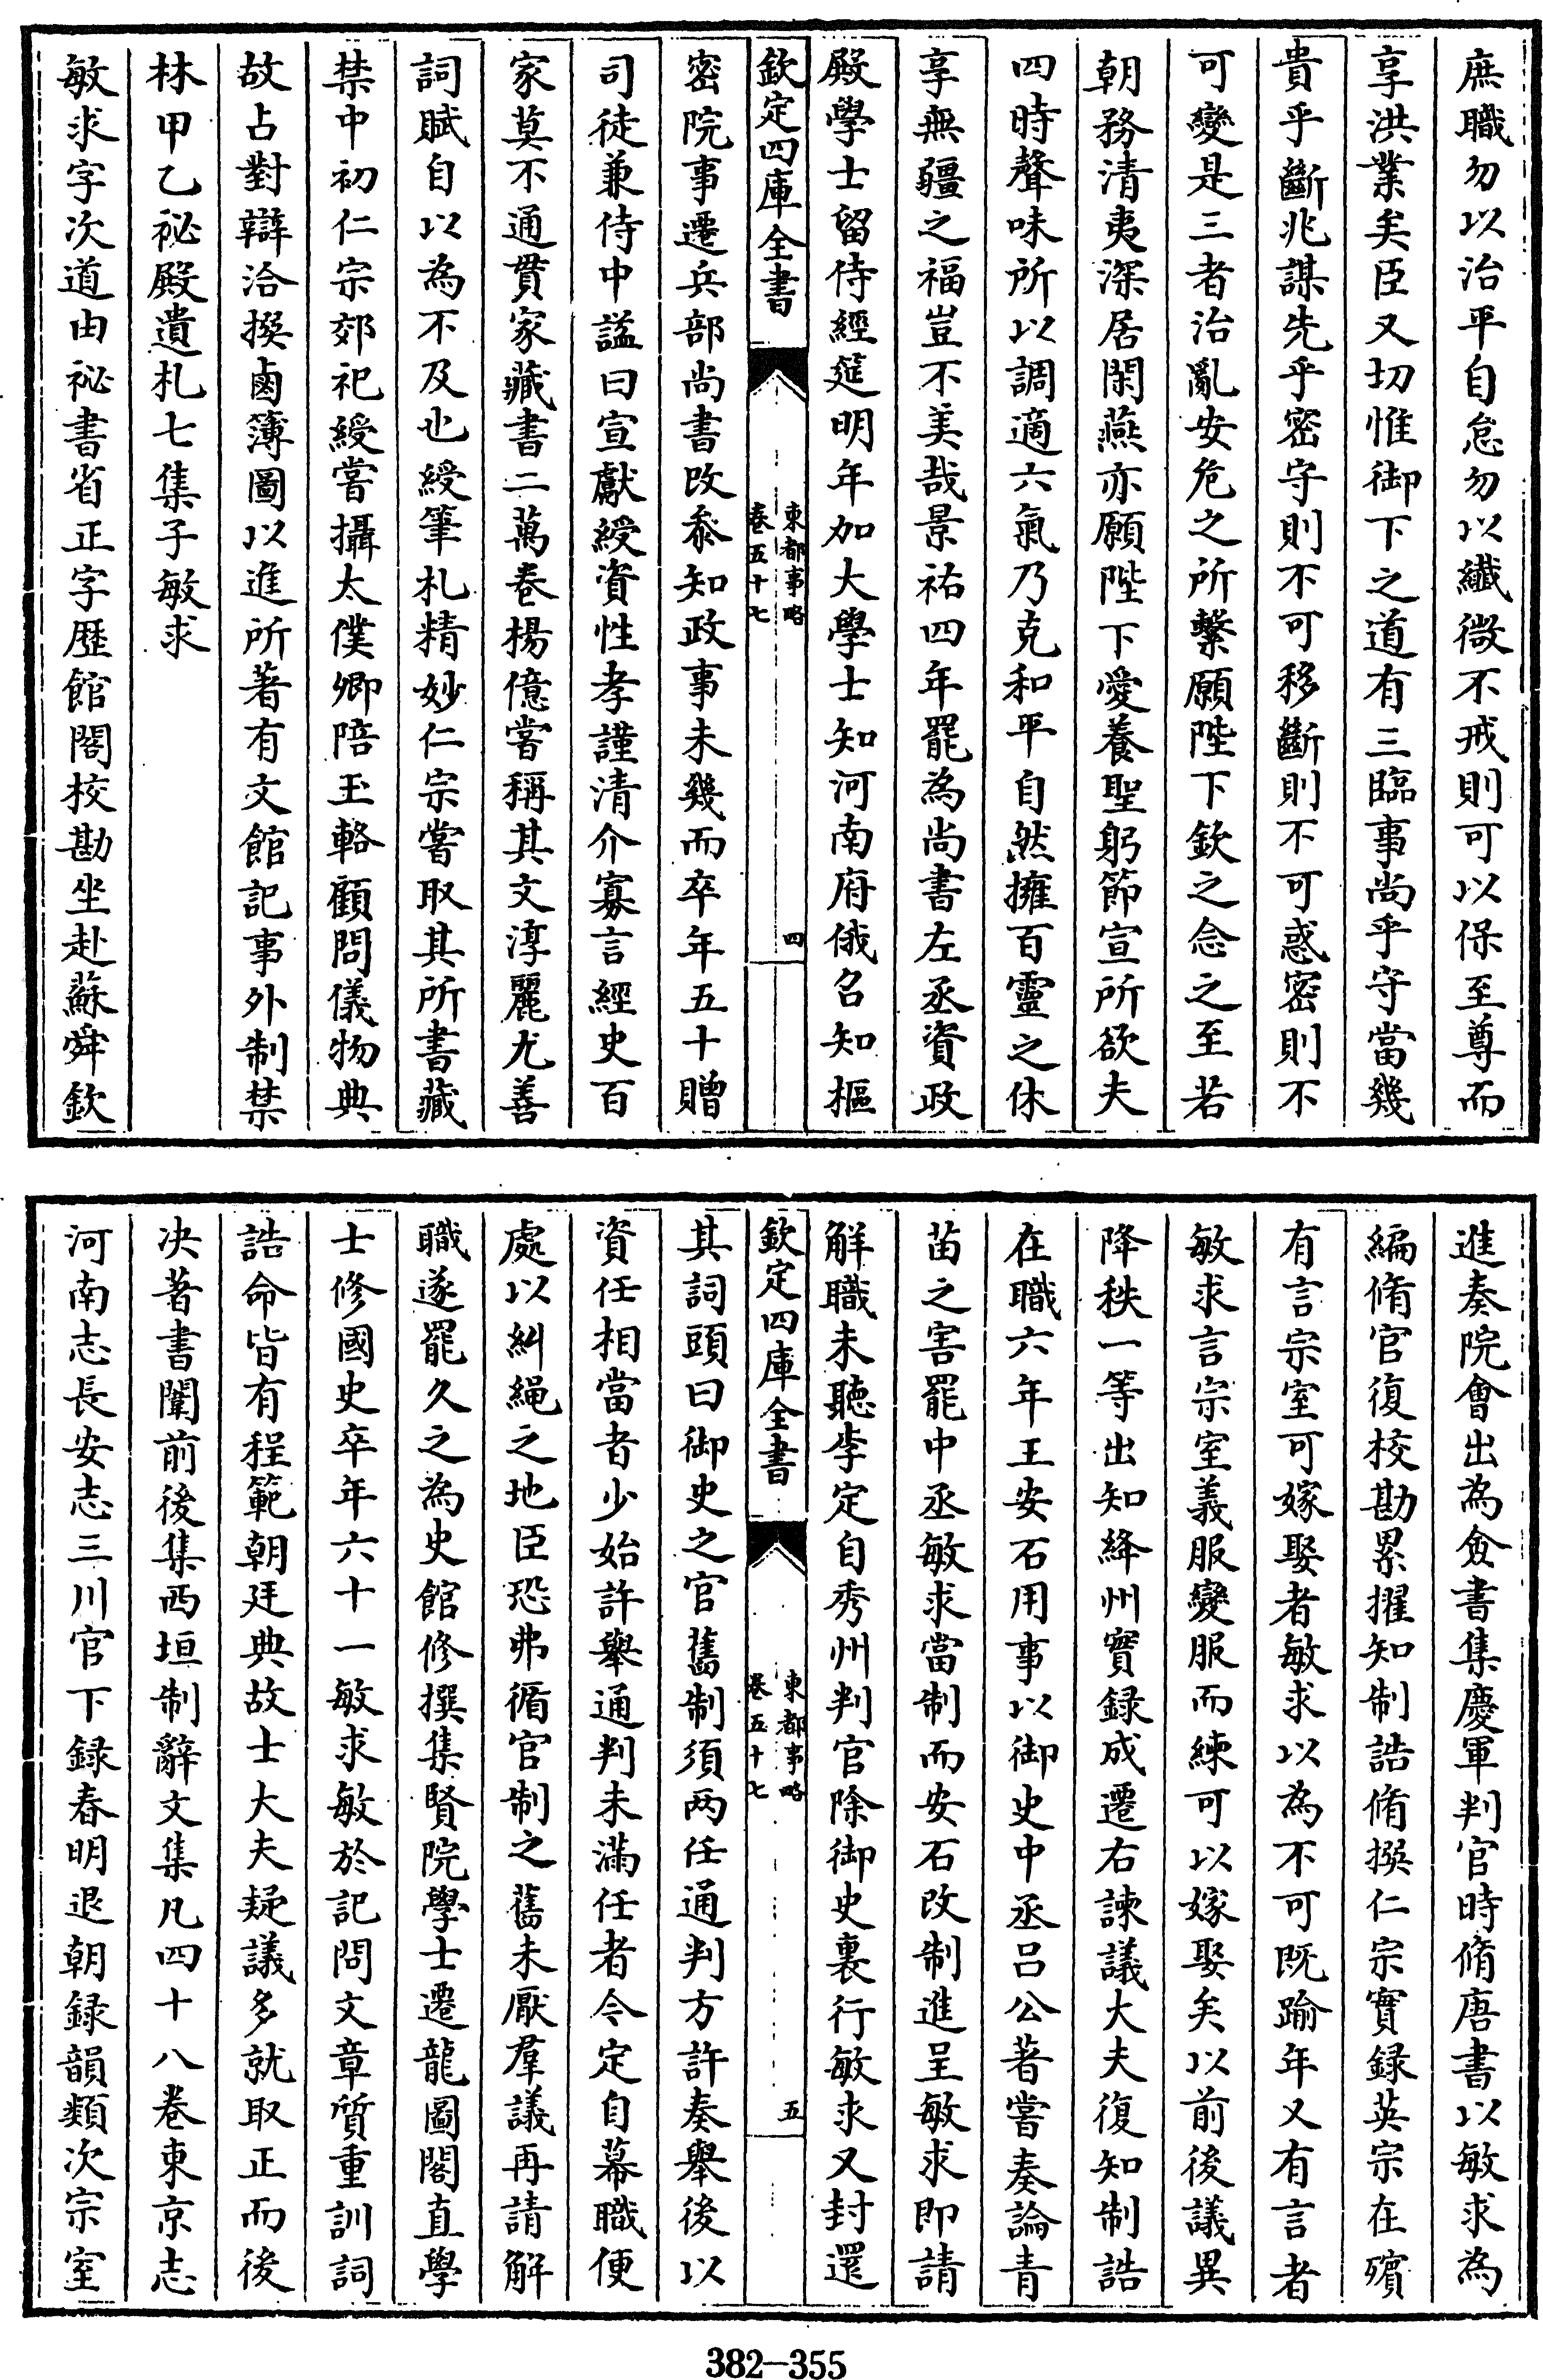 庶職勿以治平自怠勿以纖微不戒則可以保至尊而
享洪業矣臣又切惟御下之道有三臨事尚乎守當幾
貴乎斷兆謀先乎密守則不可移斷則不可惑密則不
可變是三者治亂安危之所繫願陛下欽之念之至若
朝務清夷深居閑燕亦願陛下愛養聖躬節宣所欲夫
四時聲味所以調適六氣乃克和平自然擁百靈之休
享無疆之福豈不美哉景祐四年罷為尚書左丞資政
殿學士留侍經筵明年加大學士知河南府俄召知樞
欽定四庫全書
東都事略
卷五十七
四
密院事遷兵部尚書改叅知政事未幾而卒年五十贈
司徒兼侍中謚曰宣獻綬資性孝謹清介寡言經史百
家莫不通貫家藏書二萬卷楊億嘗稱其文淳麗尤善
詞賦自以為不及也綬筆札精妙仁宗嘗取其所書藏
禁中初仁宗郊祀綬嘗攝太僕卿陪玉輅顧問儀物典
故占對辯洽撰鹵簿圖以進所著有文館記事外制禁
林甲乙祕殿遺札七集子敏求
敏求字次道由祕書省正字歴館閣校勘坐赴蘇舜欽
進奏院會出為僉書集慶軍判官時脩唐書以敏求為
編脩官復校勘累擢知制誥脩撰仁宗實録英宗在殯
有言宗室可嫁娶者敏求以為不可既踰年又有言者
敏求言宗室義服變服而練可以嫁娶矣以前後議異
降秩一等出知絳州實録成遷右諫議大夫復知制誥
在職六年王安石用事以御史中丞吕公著嘗奏論青
苗之害罷中丞敏求當制而安石改制進呈敏求即請
解職未聽李定自秀州判官除御史裏行敏求又封還
欽定四庫全書
東都事略
卷五十七
五
其詞頭曰御史之官舊制須两任通判方許奏舉後以
資任相當者少始許舉通判未滿任者令定自幕職便
處以糾繩之地臣恐弗循官制之舊未厭羣議再請解
職遂罷久之為史館修撰集賢院學士遷龍圖閣直學
士修國史卒年六十一敏求敏於記問文章質重訓詞
誥命皆有程範朝廷典故士大夫疑議多就取正而後
决著書闈前後集西垣制辭文集凡四十八卷東京志
河南志長安志三川官下録春明退朝録韻類次宗室
382—355